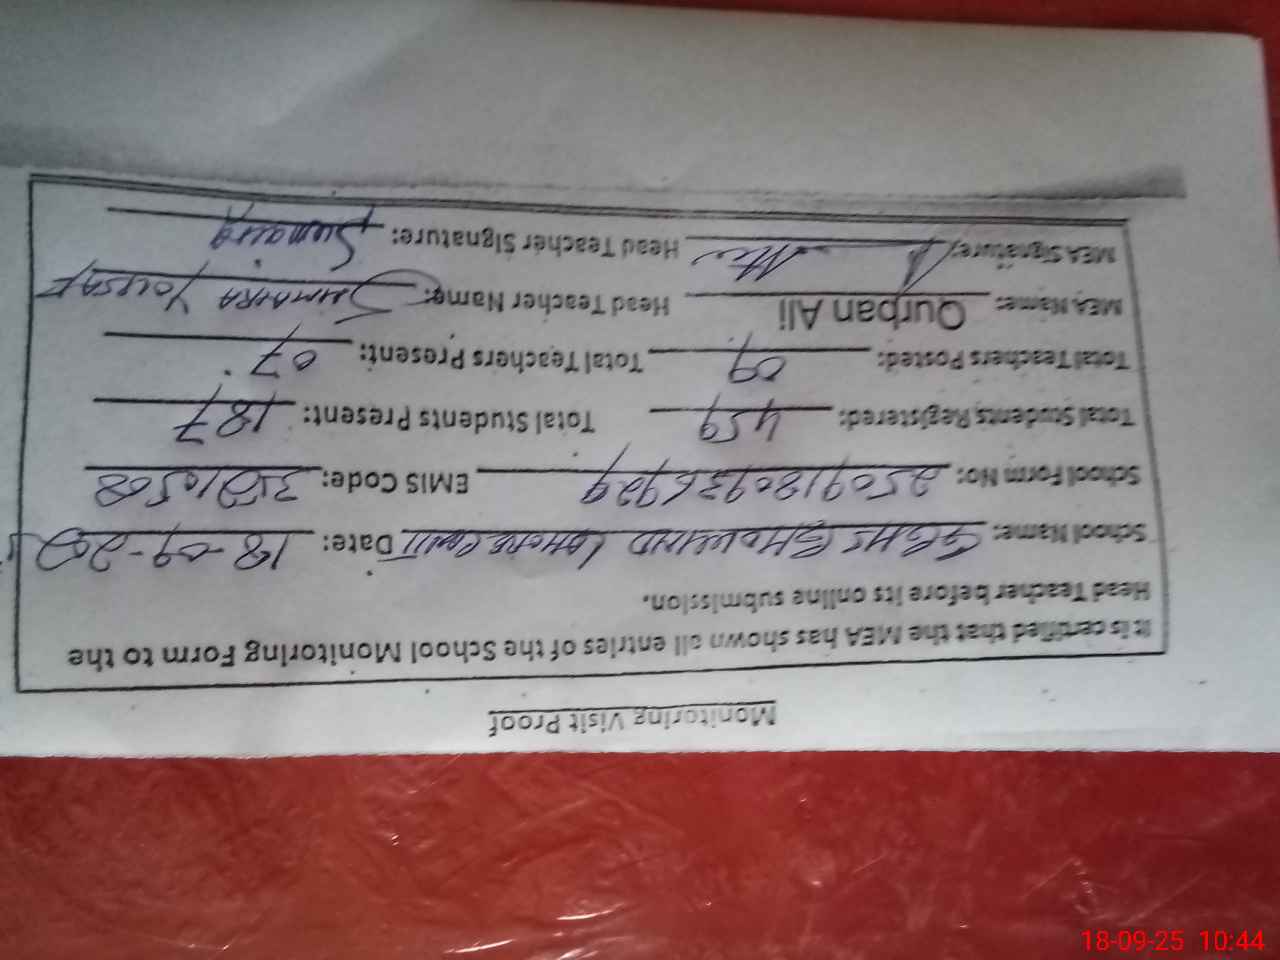 Monitoring Visit Proof
It is certified that the MEA has shown all entries of the School Monitoring Form to the
Head Teacher before its online submission.
School Name: GGHS GHAWIND LAHORE CANTT Date: 18-09-202
School Form No: 2509180936929 EMIS Code: 35210508
Total Students Registered: 459 Total Students Present: 187
Total Teachers Posted: 09 Total Teachers Present: 07
MEA Name: Qurban Ali Head Teacher Name: SUMAIRA YOUSAF
MEA Signature: Head Teacher Signature: Sumaira
18-09-25 10:44